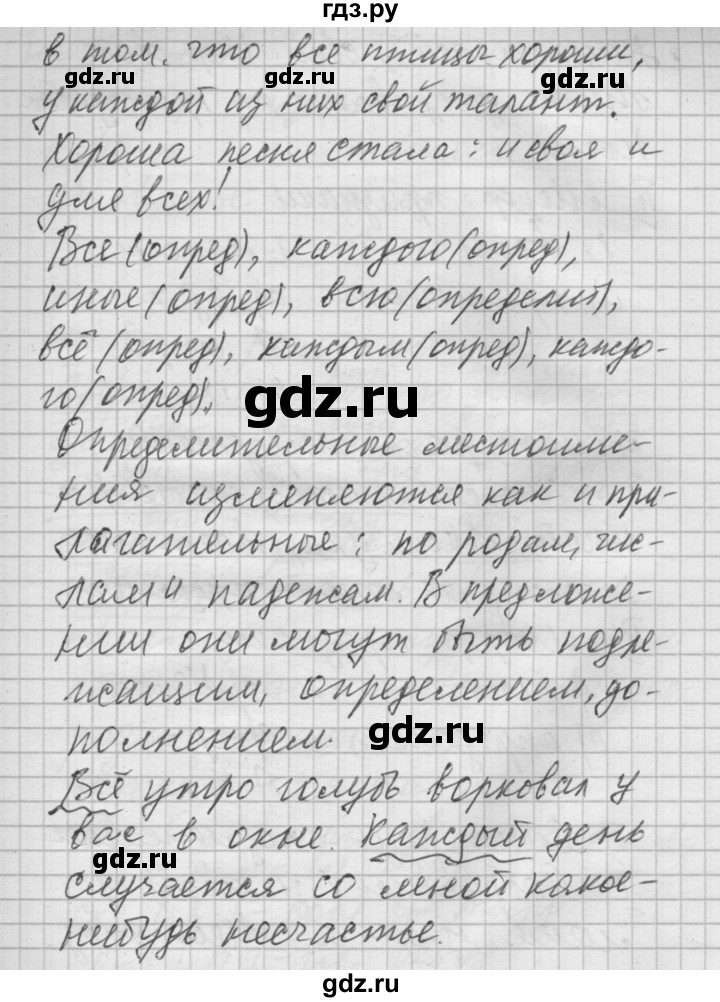 гдз.ру
в том, что все птицы хороши,
у каждой из них свой талант.
Хороша песня стала: и своя и
для всех!
Все (опред), каждого (опред),
иные (опред), всю (определит),
всё (опред), каждым (опред), каждо-
го (опред).
gdz.ru
Определительные местоиме-
ния изменяются как и при-
лагательные: по родам, чис-
gdz.ru
лам и падежам. В предложе-
нии они могут быть подле-
жащим, определением, до-
полнением.
gdz.ru
Всё утро голубь ворковал у
вас в окне. Каждый день
gdz.ru
случается со мной какое-
нибудь несчастье.
gdz.ru